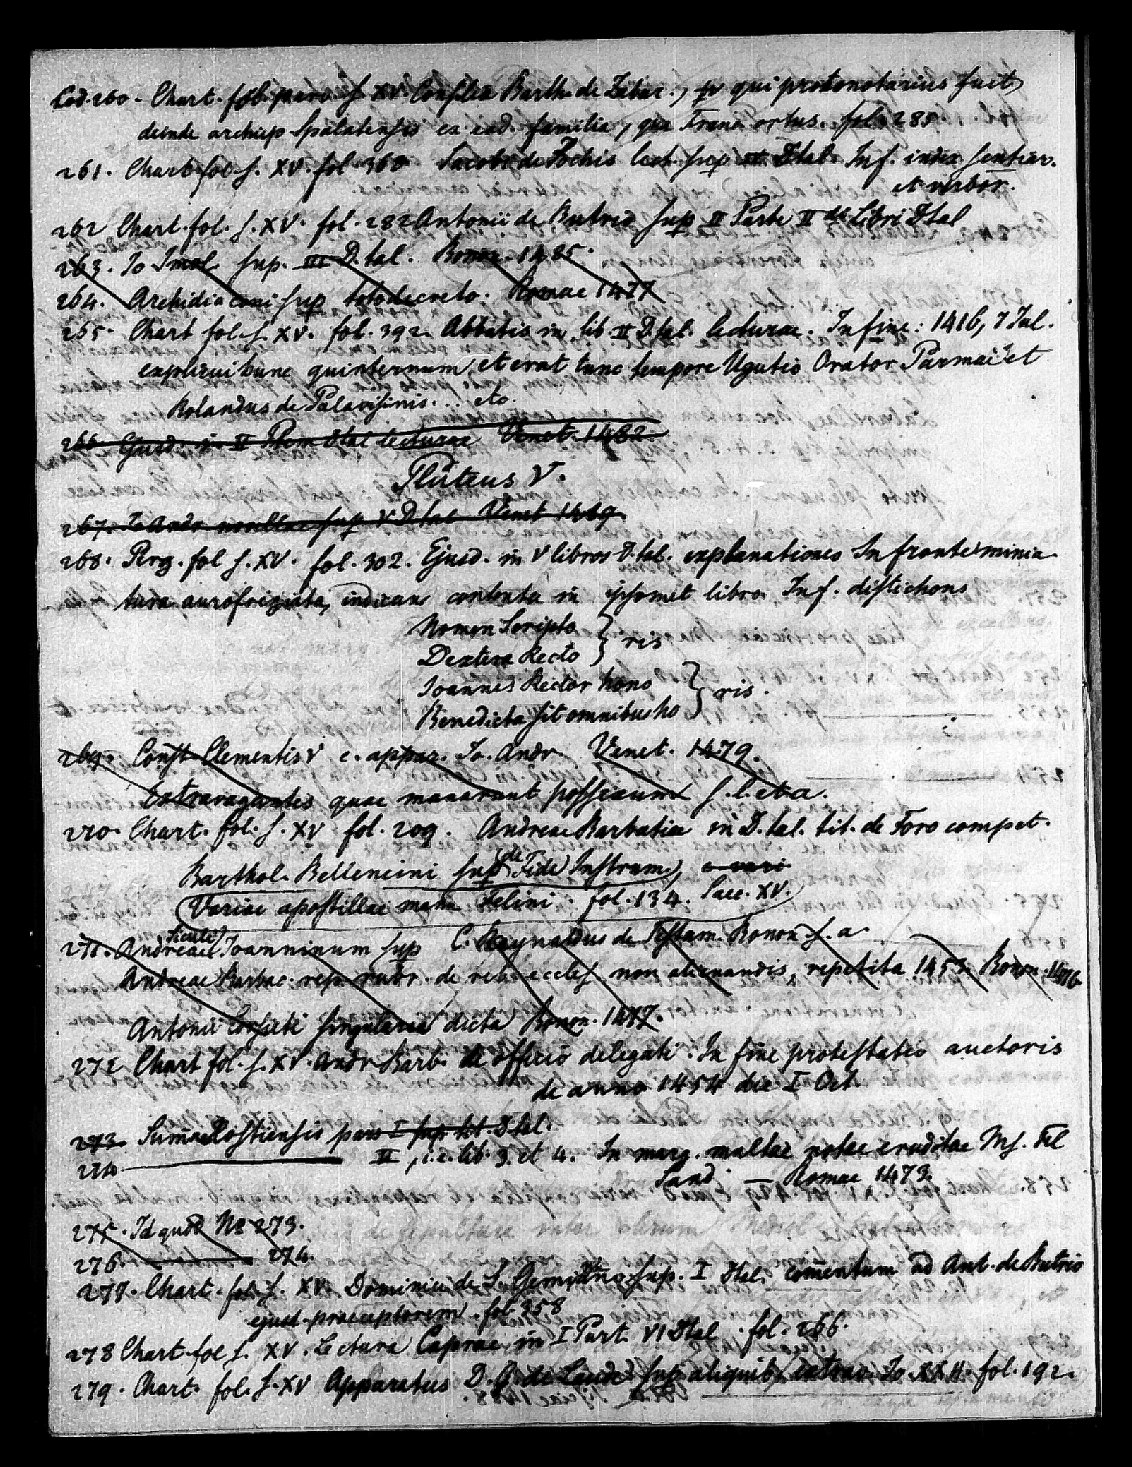 Cod. 260. Chart. fol. parvo s. XV. Consilia Barth. de Zabar., qui protonotarius fuit,
deinde archiep Spalatensis ex ead. familia, qua Franc ortus. fol. 285.
261. Chart. fol. s. XV. fol. 368 Jacobi de Zochis lect. sup III Dtal. Inf. index sentiar.
et verbor.
262 Chart. fol. s. XV. fol. 282 Antonii de Butrio sup II Parte II di Libri Dtal
263. Jo Imol. sup. III D.tal. Bonon. 1485.
264. Archidiaconi sup toto decreto. Romae 1477
265. Chart fol. s. XV. fol. 392. Abbatis in lib II D.tal. lecturae. In fine: 1416, 7 Jul.
explicui hunc quinternum, et erat tunc tempore Ugutio Orator Parmae et
Rolandus de Palavisinis... etc.
266. Ejusd. in II Dtal lecturae Venet. 1482.
Pluteus V.
267. Jo Andr novellae sup V D.tal Venet 1489.
268. Perg. fol s. XV. fol. 302. Ejusd. in V libros D.tal. explanationes In fronte minia
tura auro picta, indicans contenta in ipsomet libro. Inf. distichons
Nomen Scripto
Dextera Recto } ris
Joannes Rector hono
Benedicta sit omnibus ho } ris.
269. Const Clementis V c. appar. Jo. Andr Venet. 1479.
Extravagantes quae manarunt post sextum s. l. et a.
270. Chart. fol. s. XV fol. 209. Andreae Barbatia in D.tal. tit. de Foro compet.
Barthol. Bellencini sup de Fide Instrum,
Variae apostillae manu Felini. fol. 134. Saec. XV.
271. Andreae Siculi Joanninum sup C. Raynaldus de Testam. Bonon s. a
Andreae Barbac. rep. rubr. de rebus eccles non alienandis, repetita 1453. Bonon. 1476
Antonii Corseti singularia dicta Bonon. 1477.
272 Chart fol. s. XV. Andr. Barb. de officio delegati. In fine protestatio auctoris
de anno 1454 die I Oct.
273 Suma Hostiensis pars I sup tot D.tal.
274 II, i.e. lib. 3. et 4. In marg. multae notae eruditae Ms. Fel
Sand — Romae 1473.
275. Id quod No 273.
276. 274.
277. Chart. fol. s. XV. Dominici de S. Gemin. sup. I Dtal. Comentum ad Ant. de Butrio
ejusd. praeceptorem fol. 358
278 Chart. fol s. XV. Lectura Caprae in I Part. VI Dtal fol. 266.
279. Chart. fol. s. XV Apparatus D. G. de Laude sup aliquib. extrav. Jo. XXII. fol. 192.